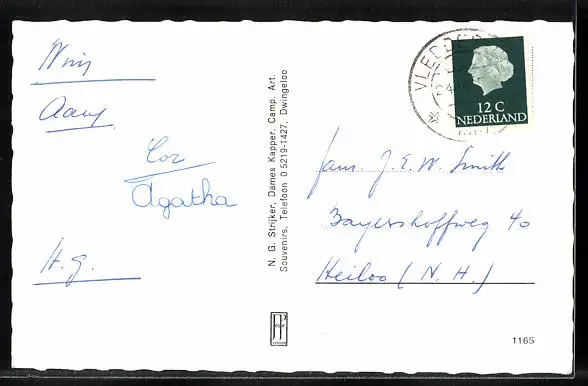 Wim
Aany
Cor
Agatha
H.g.
N. G. Strijker, Dames Kapper, Camp. Art.
Souvenirs, Telefoon 0 5219-1427, Dwingeloo
VLEDDER
12 C
NEDERLAND
fam. J. E. W. Smith
Bayershoffweg 40
Heiloo (N. H.)
1165